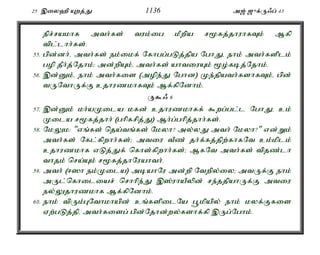 25 இலைஹி யுறத்து 1136 அஜ் ஜுக்ருஃப் 43
நிச்சயமாக அவர்கள் வரம்பை மீறிய சமூகத்தாராகவும் ஆகி
விட்டார்கள்.
55. பின்னர், அவர்கள் நம்மைக் கோபப்படுத்திய போது, நாம் அவர்களிடம்
பழி தீர்த்தோம்; அன்றியும், அவர்கள் யாவரையும் மூழ்கடித்தோம்.
56. இன்னும், நாம் அவர்களை (அழிந்து போன) முந்தியவர்களாகவும், பின்
வருவோருக்கு உதாரணமாகவும் ஆக்கினோம்.
ருகூஃ 6
57. இன்னும் மர்யமுடைய மகன் உதாரணமாகக் கூறப்பட்ட போது, உம்
முடைய சமூகத்தார் (பரிகசித்து) ஆர்ப்பரித்தார்கள்.
58. மேலும்: "எங்கள் தெய்வங்கள் மேலா? அல்லது அவர் மேலா?" என்றும்
அவர்கள் கேட்கிறார்கள்; அவரை வீண் தர்க்கத்திற்காகவே உம்மிடம்
உதாரணமாக எடுத்துக் கொள்கிறார்கள்; ஆகவே அவர்கள் விதண்டா
வாதம் செய்யும் சமூகத்தாரேயாவர்.
59. அவர் (ஈஸா நம்முடைய) அடியாரே அன்றி வேறில்லை; அவருக்கு நாம்
அருட்கொடையைச் சொரிந்து இஸ்ராயீலின் சந்ததியாருக்கு அவரை
நல்லுதாரணமாக ஆக்கினோம்.
60. நாம் விரும்புவோமாயின் உங்களிடையே பூமியில் நாம் மலக்குகளை
ஏற்படுத்தி, அவர்களைப் பின்தோன்றல்களாக்கி இருப்போம்.